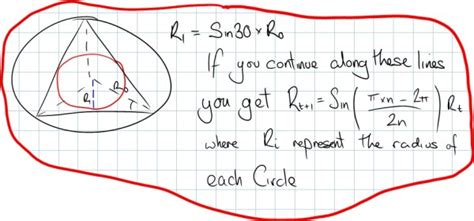 R₁ = Sin30 × R₀
If you continue along these lines
you get Rₜ₊₁ = Sin( (π×n − 2π) / 2n ) Rₜ
where Ri represent the radius of
each Circle
R₁ R₀